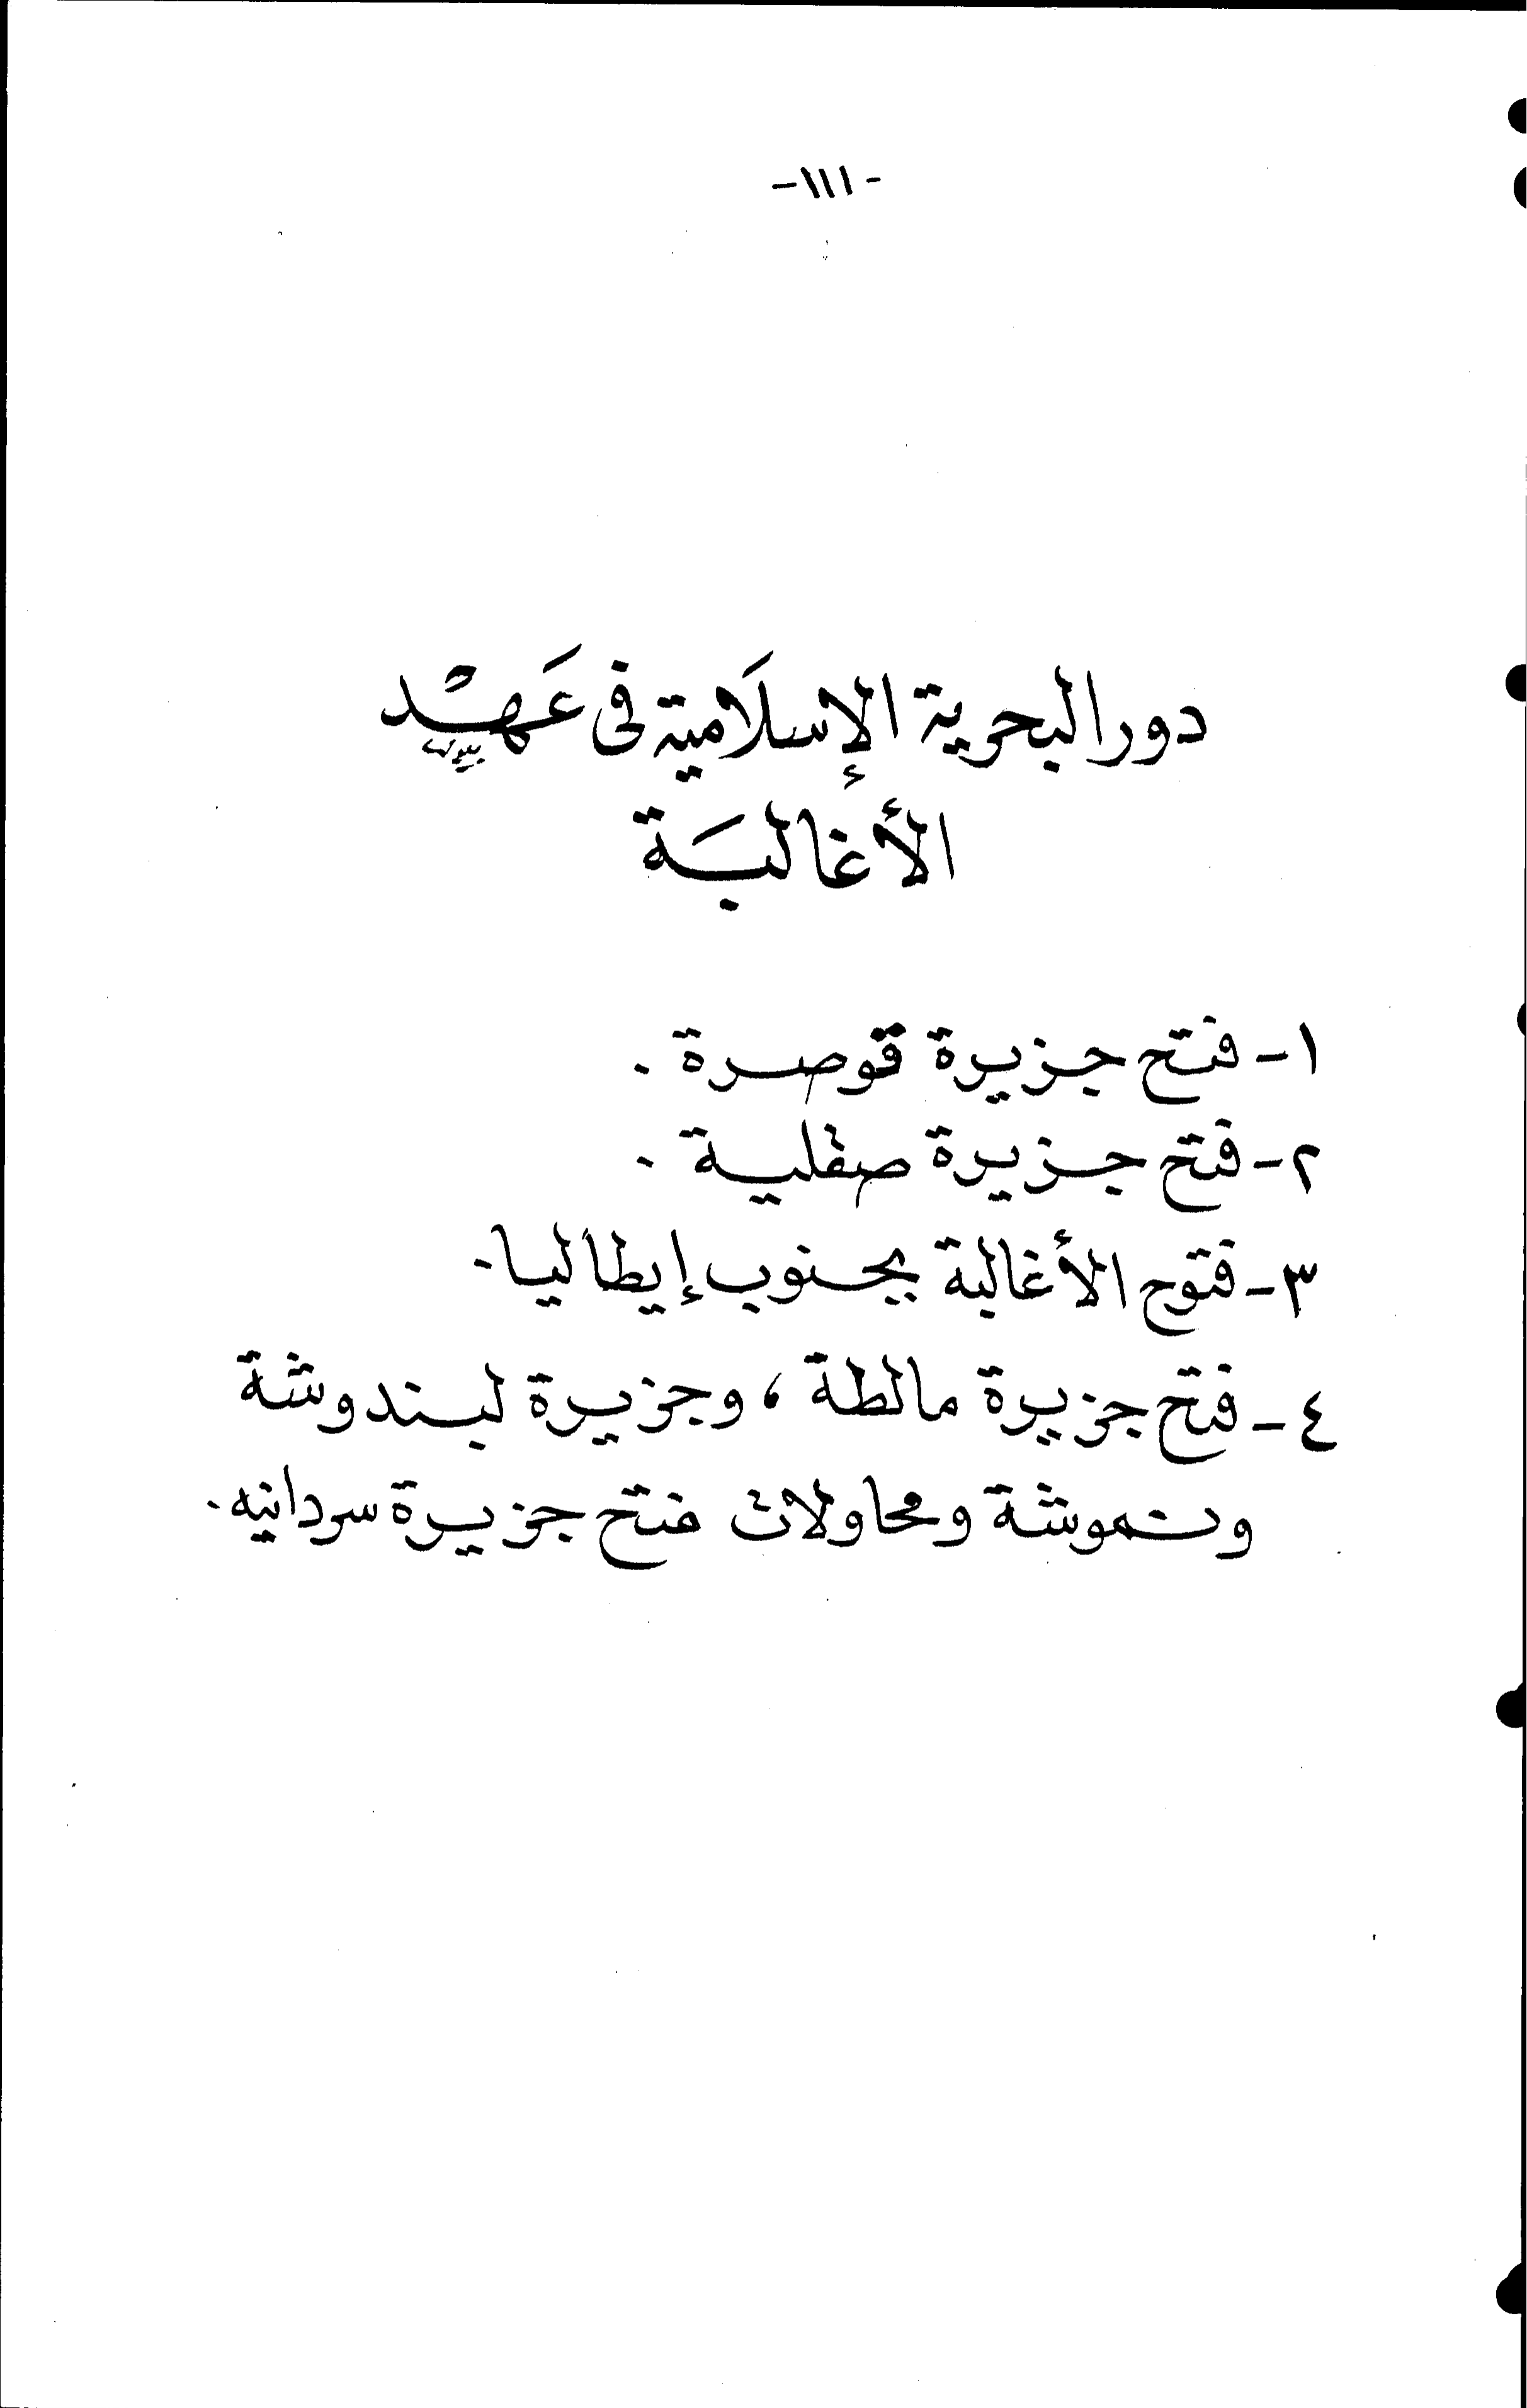 -١١١-
دور البحرية الإسلَامية فى عَهْد
الأغالبَة
١- فتح جزيرة قوصرة .
٢- فتح جزيرة صقلية .
٣- فتوح الأغالبة بجنوب إيطاليا.
٤- فتح جزيرة مالطة ، وجزيرة لبندوشة
ونموشة ومحاولات فتح جزيرة سردانيه.